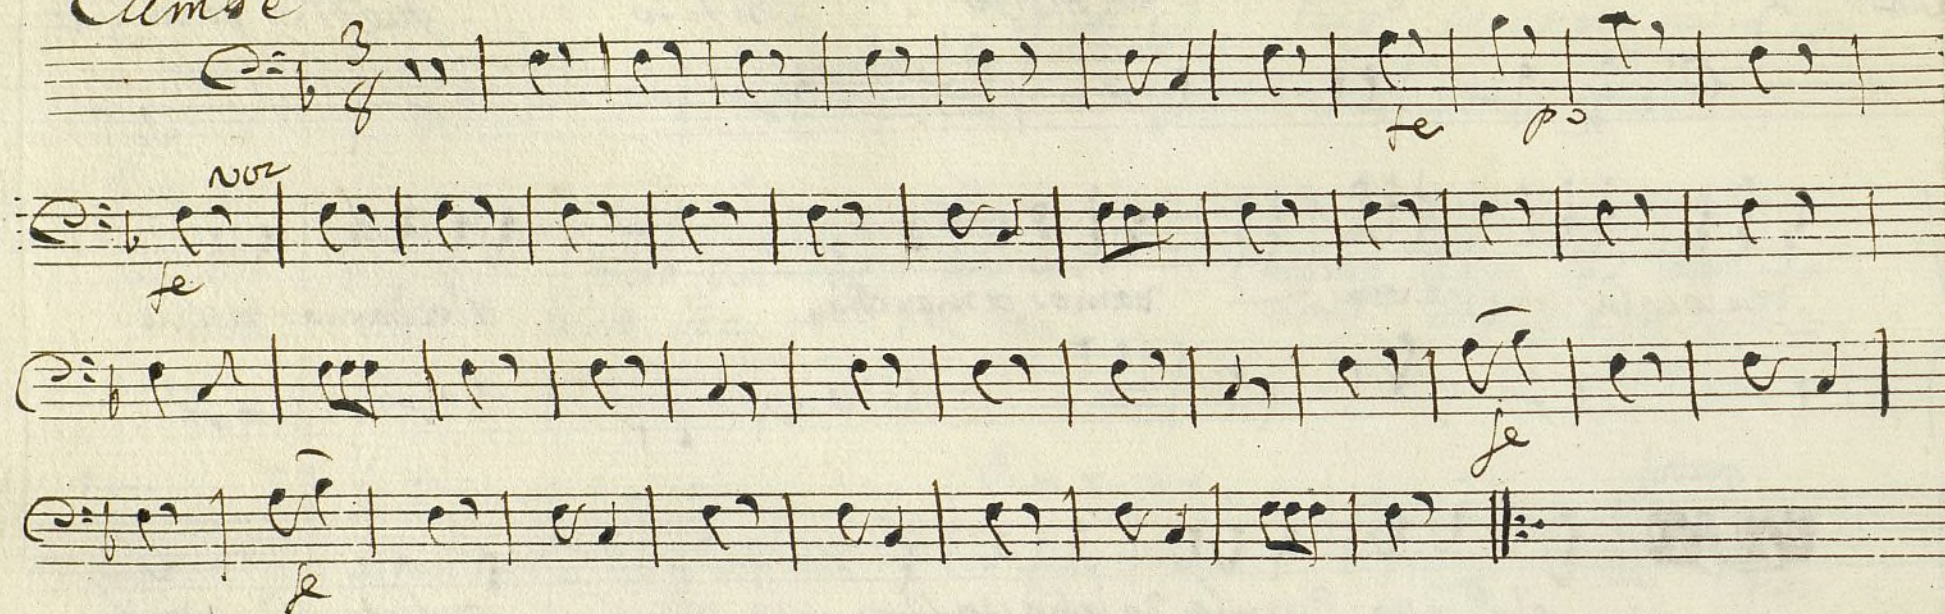 Cumbe
3
8
fe po
voz
fe
fe
fe